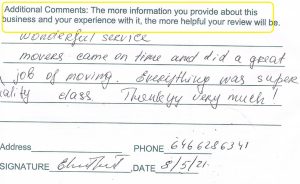 Additional Comments: The more information you provide about this
business and your experience with it, the more helpful your review will be.
wonderful service
movers came on time and did a great
job of moving. Everything was super
ality class. Thankyy very much!
Address
PHONE 6466286341
SIGNATURE DATE 8/5/21